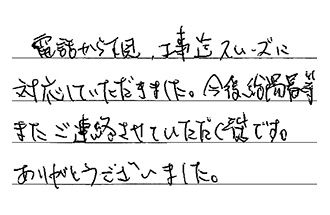 電話から下見、工事迄スムーズに
対応していただきました。今後給湯器等
またご連絡させていただく予定です。
ありがとうございました。